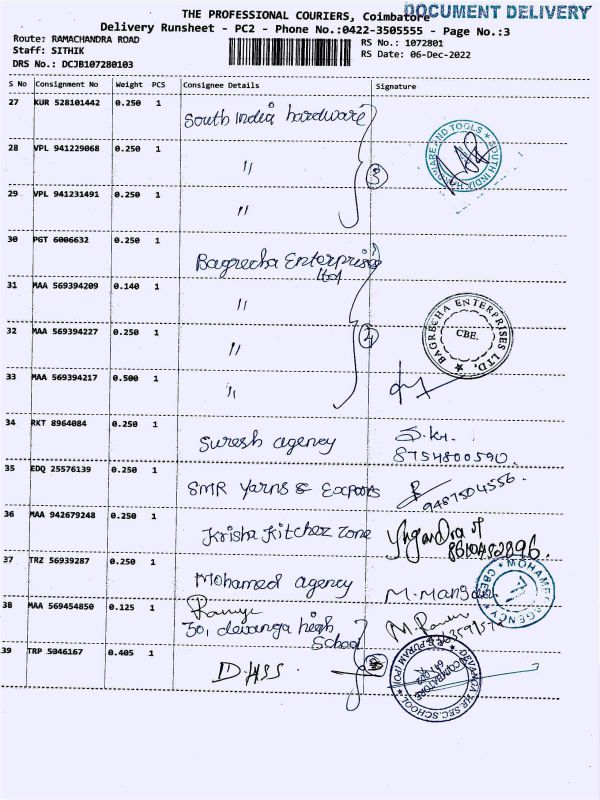 DOCUMENT DELIVERY
THE PROFESSIONAL COURIERS, Coimbatore
Delivery Runsheet - PC2 - Phone No.:0422-3505555 - Page No.:3
Route: RAMACHANDRA ROAD
RS No.: 1072801
Staff: SITHIK
RS Date: 06-Dec-2022
DRS No.: DCJB107280103
S No Consignment No Weight PCS Consignee Details Signature
27 KUR 528101442 0.250 1 South India hardware
28 VPL 941229068 0.250 1 "
3
HARDWARE AND TOOLS * SOUTH INDIA
29 VPL 941231491 0.250 1 "
30 PGT 6006632 0.250 1 Bagrecha Enterprises
ltd
31 MAA 569394209 0.140 1 "
32 MAA 569394227 0.250 1 "
4
BAGRECHA ENTERPRISES LTD.
CBE.
33 MAA 569394217 0.500 1 "
34 RKT 8964084 0.250 1 Suresh agency
8754800590
35 EDQ 25576139 0.250 1 SMR Yarns & Exports
9487504556
36 MAA 942679248 0.250 1 Krisha Kitchez Zone
37 TRZ 56939287 0.250 1 Mohamed agency
MOHAMED AGENCY * CBE
38 MAA 569454850 0.125 1
30, devanga high
School
39 TRP 5046167 0.405 1 D.HSS
DEVANGA HR.SEC.SCHOOL
R.S PURAM (PO)
COIMBATORE